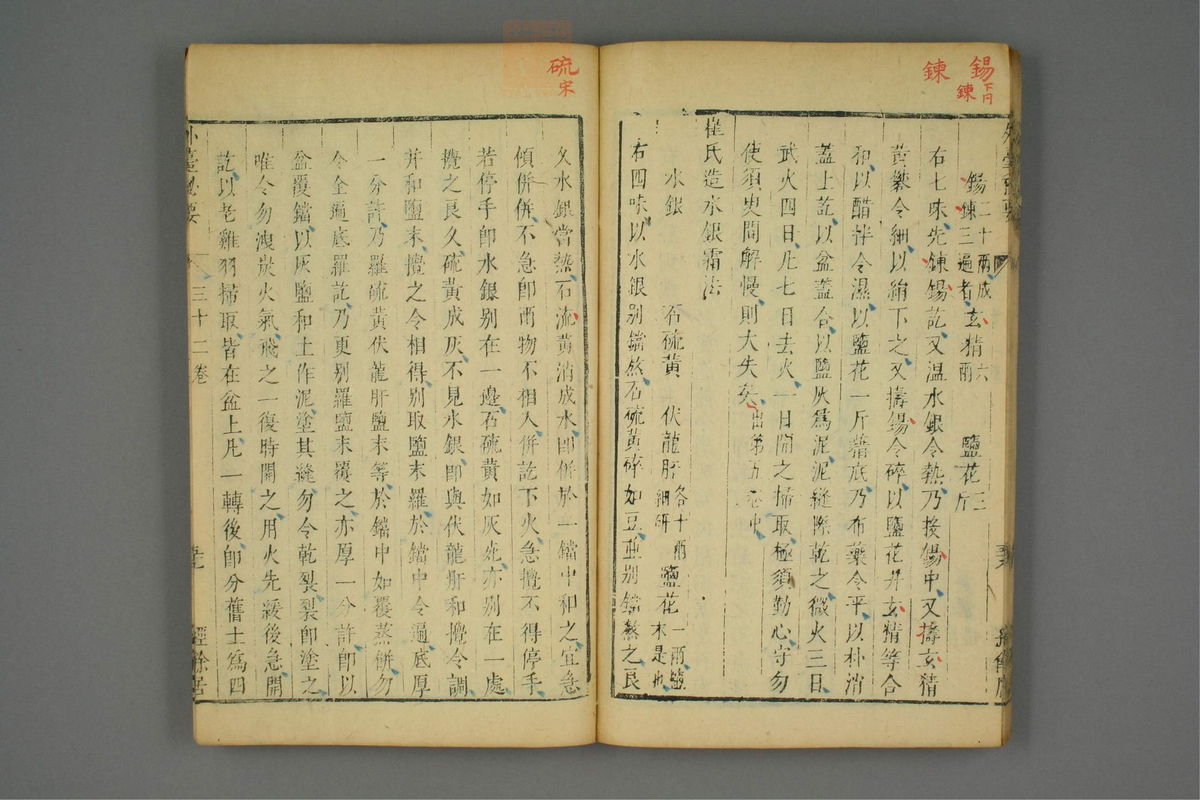 錫 下同
鍊
鍊
錫二十兩成鍊三遍者 玄猜六兩 鹽花三斤
右七味先鍊錫訖又溫水銀令熱乃投錫中又擣玄猜
黃礬令細以絹下之又擣錫令碎以鹽花并玄猜等合
和以醋拌令濕以鹽花一斤藉底乃布藥令平以朴消
蓋上訖以盆蓋合以鹽灰爲泥泥縫際乾之微火三日
武火四日凡七日去火一日開之掃取極須勤心守勿
使須臾間解慢則大失矣出第五卷中
崔氏造水銀霜法
水銀 石硫黃 伏龍肝各十兩細研 鹽花一兩鹽末是也
右四味以水銀別鐺熬石硫黃碎如豆並別鐺熬之良
硫宋
久水銀當熱石流黃消成水即併於一鐺中和之宜急
傾併併不急即兩物不相入併訖下火急攪不得停手
若停手即水銀別在一邊石硫黃如灰死亦別在一處
攪之良久硫黃成灰不見水銀即與伏龍肝和攪令調
并和鹽末攪之令相得別取鹽末羅於鐺中令遍底厚
一分許乃羅硫黃伏龍肝鹽末等於鐺中如覆蒸餅勿
令全遍底羅訖乃更別羅鹽末覆之亦厚一分許即以
盆覆鐺以灰鹽和土作泥塗其縫勿令乾裂裂即塗之
唯令勿洩炭火氣飛之一復時開之用火先緩後急開
訖以老雞羽掃取皆在盆上凡一轉後即分舊土爲四
外臺秘要 三十二卷 經餘居